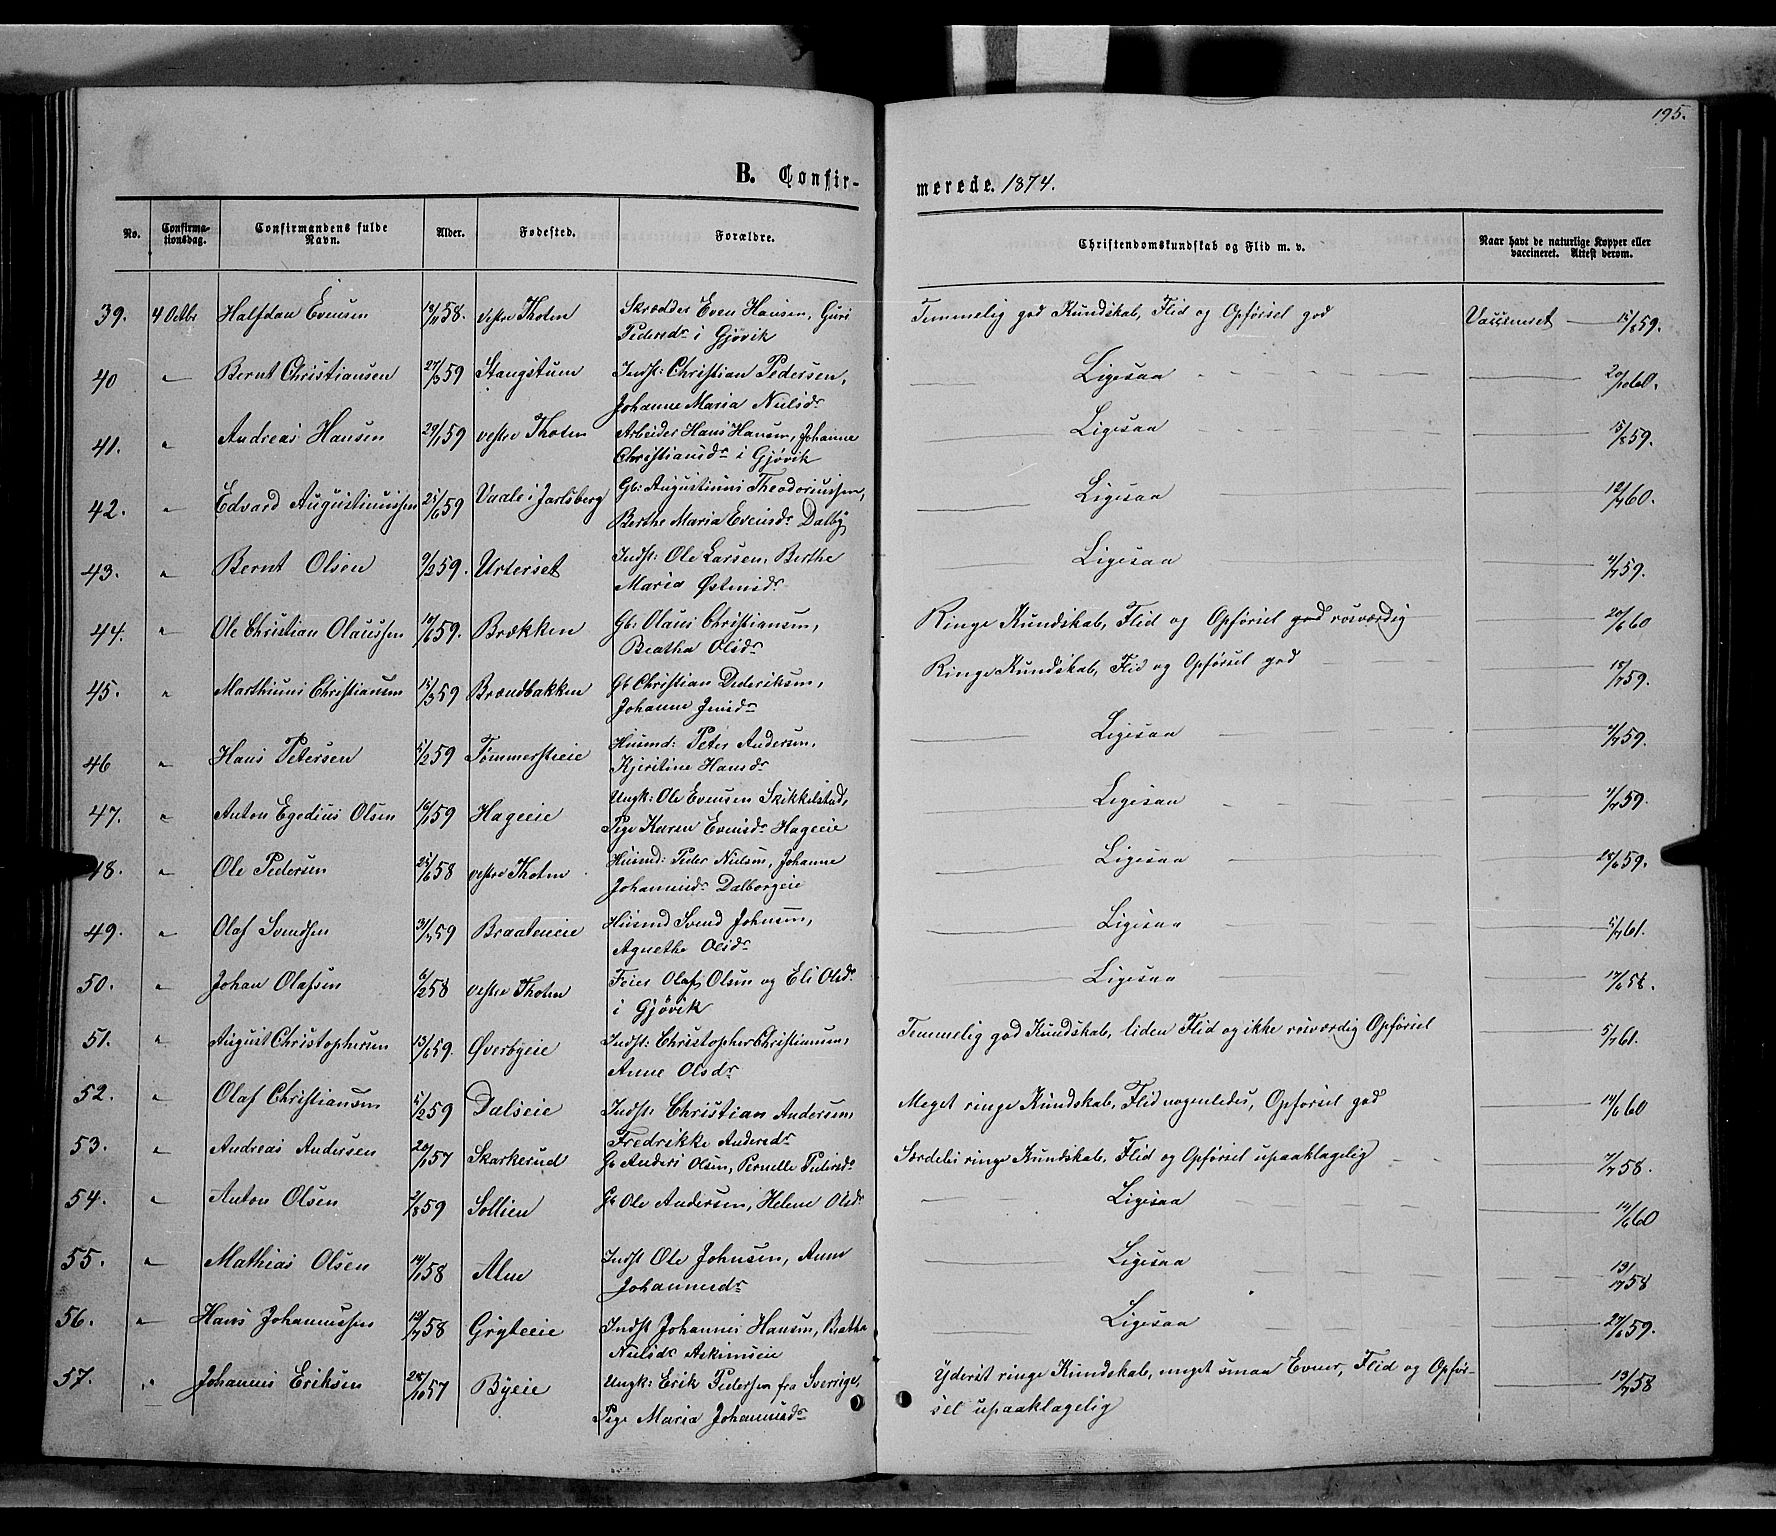 195.
B. Confirmerede. 1874.
No. Confirmationsdag. Confirmandens fulde Navn. Alder. Fødested. Forældre. Christendomskundskab og Flid m. v. Naar havt de naturlige Kopper eller vaccineret. Attest derom.
39. 4 Octbr Halfdan Evensen 18/11 58. vestre Thoten Skrædder Even Hansen, Guri Temmelig god Kundskab, Flid og Opførsel god Vaccineret 15/8 59.
Pedersdr i Gjøvik
40 " Bernt Christiansen 27/3 59 Stangstuen Indst: Christian Pedersen, Ligesaa 20/10 60.
Johanne Maria Nielsdr
41. " Andreas Hansen 29/1 59 vestre Thoten Arbeider Hans Hansen, Johanne Ligesaa 15/8 59.
Christiansdr i Gjøvik
42. " Edvard Augustinussen 25/6 59 Vaale i Jarlsberg Gb: Augustinus Theodoriussen, Ligesaa 12/7 60.
Berthe Maria Evensdr Dalby
43. " Bernt Olsen 9/2 59. Urterset Indst: Ole Larsen, Berthe Ligesaa 4/7 59.
Maria Østensdr
44. " Ole Christian Olaussen 14/6 59. Brækken Gb: Olaus Christiansen, Ringe Kundskab, Flid og Opførsel god rosværdig 20/6 60
Beatha Olsdr
45. " Marthinus Christiansen 15/3 59 Brændbakken Gb Christian Dideriksen, Ringe Kundskab, Flid og Opførsel god 18/7 59.
Johanne Jensdr
46 " Hans Petersen 5/2 59 Tømmerstieie Husmd: Peter Andersen, Ligesaa 4/7 59.
Kjerstine Hansdr
47. " Anton Egedius Olsen 16/1 59 Hageeie Ungk: Ole Evensen Skikkelstad, Ligesaa 4/7 59.
Pige Karen Evensdr Hageeie
48. " Ole Pedersen 25/6 58 vestre Thoten Husmd: Peder Nielsen, Johanne Ligesaa 28/6 59.
Johannesdr Dalborgeie
49. " Olaf Svendsen 31/7 59 Braateneie Husmd Svend Johnsen, Ligesaa 5/7 61.
Agnethe Olsdr
50. " Johan Olafsen 6/2 58 vestre Thoten Feier Olaf Olsen og Eli Olsdr Ligesaa 17/6 58.
i Gjøvik
51. " August Christophersen 13/6 59. Øverbyeie Indst: Christopher Christiansen, Temmelig god Kundskab, liden Flid og ikke rosværdig Opførsel 5/7 61.
Anne Olsdr
52. " Olaf Christiansen 5/2 59 Dælseie Indst: Christian Andersen, Meget ringe Kundskab, Flid nogenledes, Opførsel god 14/6 60
Fredrikke Andersdr
53. " Andreas Andersen 20/1 57 Skarkerud Gb Anders Olsen, Pernelle Pedersdr Særdeles ringe Kundskab, Flid og Opførsel upaaklagelig 7/7 58.
54. " Anton Olsen 9/8 59 Sollien Gb Ole Andersen, Helene Olsdr Ligesaa 14/6 60
55. " Mathias Olsen 14/1 58 Alm Indst Ole Johnsen, Anne Ligesaa 13/17 58
Johannesdr
56. " Hans Johannessen 19/7 58 Gryteeie Indst Johannes Hansen, Beathe Ligesaa 27/6 59.
Nielsdr Askimseie
57. " Johannes Eriksen 28/10 57 Byeie Ungk: Erik Pedersen fra Sverrige, Yderst ringe Kundskab, meget smaa Evner, Flid og Opfør- 13/7 58
Pige Maria Johannesdr sel upaaklagelig